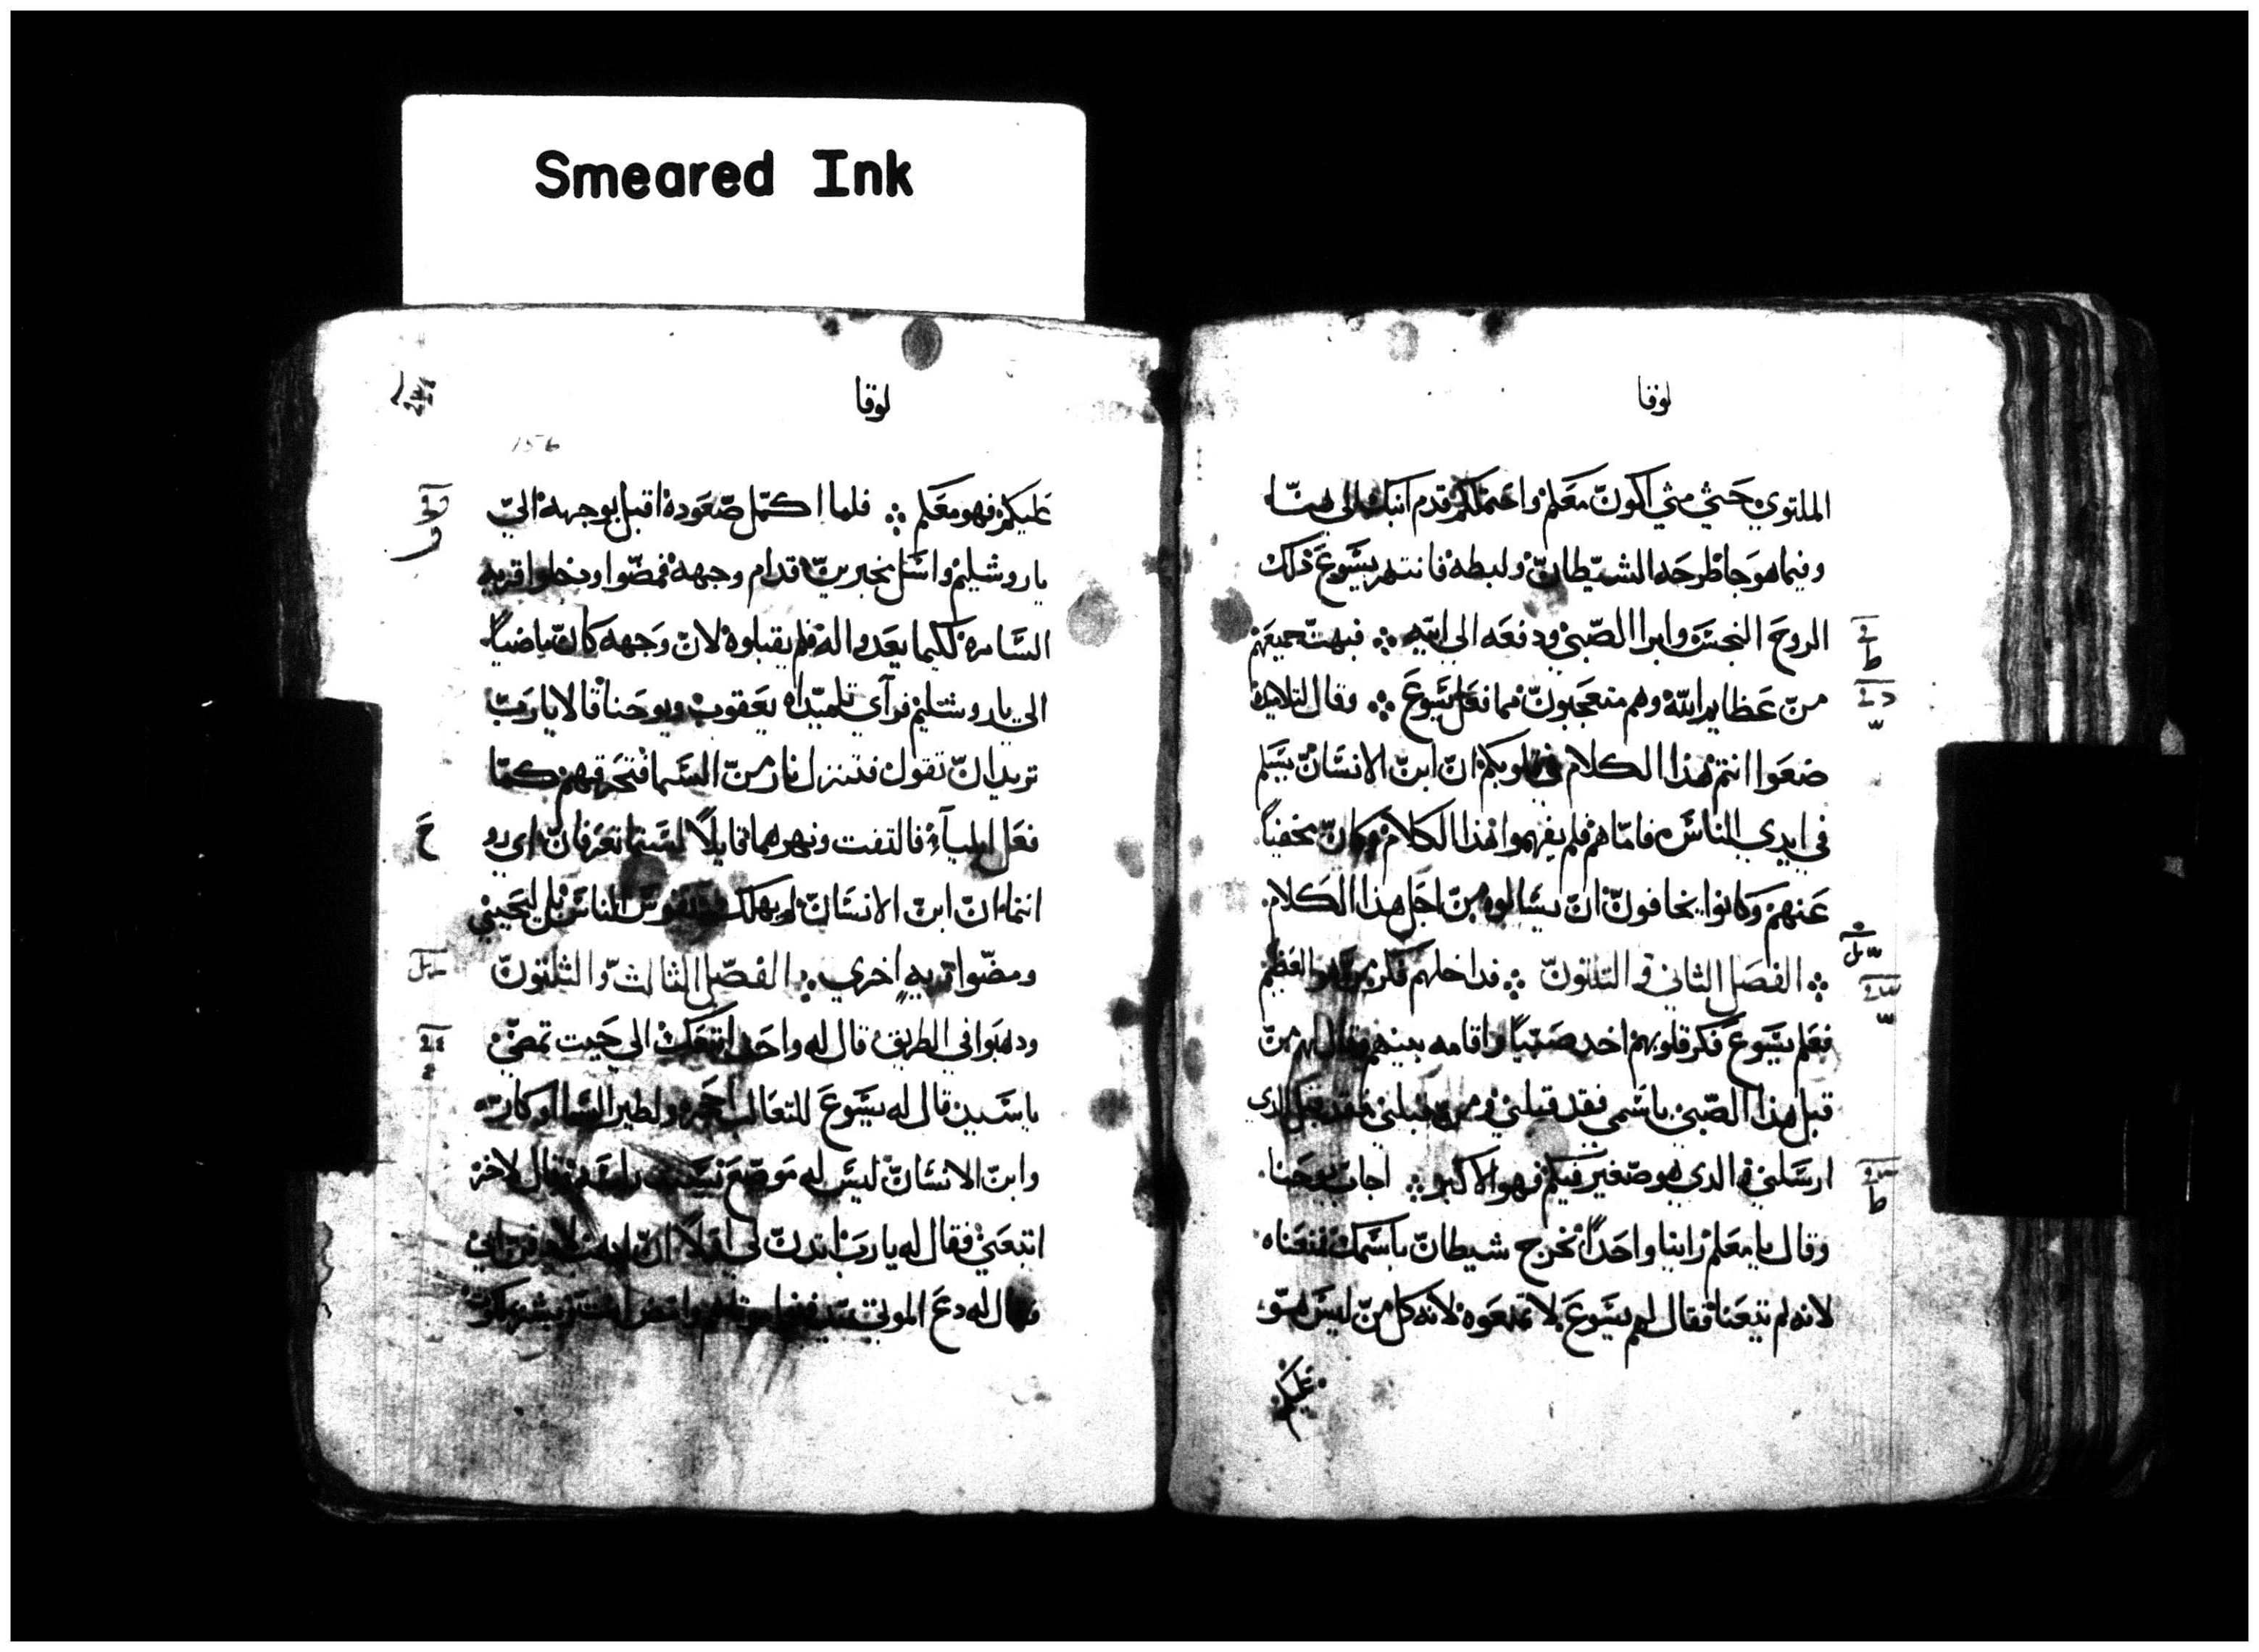 Smeared Ink
لوقا
الملتوي حتي متي اكون معكم واحتملكم قدم ابنك الي هنا
وفيما هو جا طرحه الشيطان ولبطه فانتهر يسوع ذلك
الروح النجس وابرا الصبي ودفعه الي ابيه ۞ فبهت جميعهم
من عظايم الله وهم متعجبون مما فعل يسوع ۞ وقال لتلاميذه
ضعوا انتم هذا الكلام في قلوبكم ان ابن الانسان يسلم
في ايدي الناس فاما هم فلم يفهموا هذا الكلام وكان مخفيا
عنهم وكانوا يخافون ان يسالوه من اجل هذا الكلام
۞ الفصل الثاني و الثلتون ۞ فداخلهم فكر من هو العظيم
فعلم يسوع فكر قلوبهم اخد صبيا واقامه بينهم وقال لهم من
قبل هذا الصبي باسمي فقد قبلني ومن قبلني فقد قبل الدي
ارسلني والدي هو صغير فيكم فهو الاكبر ۞ اجاب يوحنا
وقال يا معلم راينا واحدا يخرج شيطان باسمك فمنعناه
لانه لم يتبعنا فقال لهم يسوع لا تمنعوه لانه كل من ليس هو
عليكم
لوقا
156
عليكم فهو معكم ۞ فلما اكتمل صعوده اقبل بوجهه الي
ياروشليم وارسل مخبرين قدام وجهه فمضوا ودخلوا قريه
السامره لكيما يعدوا له فلم يقبلوه لان وجهه كان ماضيا
الي ياروشليم فراي تلميداه يعقوب ويوحنا قالا يا رب
تريد ان نقول فتنزل نار من السما فتحرقهم كما
فعل ايليآء فالتفت ونهرهما قايلا لستما تعرفان اي روح
انتما ان ابن الانسان لم يهلك نفوس الناس بل ليحيي
ومضوا قريه اخري ۞ الفصل الثالث و الثلثون
ودهبوا في الطريق قال له واحد اتبعك الي حيت تمضي
ياسيد قال له يسوع للتعالب اجحره ولطير السما اوكار
وابن الانسان ليس له موضع يسند راسه وقال لاخر
اتبعني فقال له يا رب ايدن لي اولا ان ادفن ابي
فقال له دع الموتي